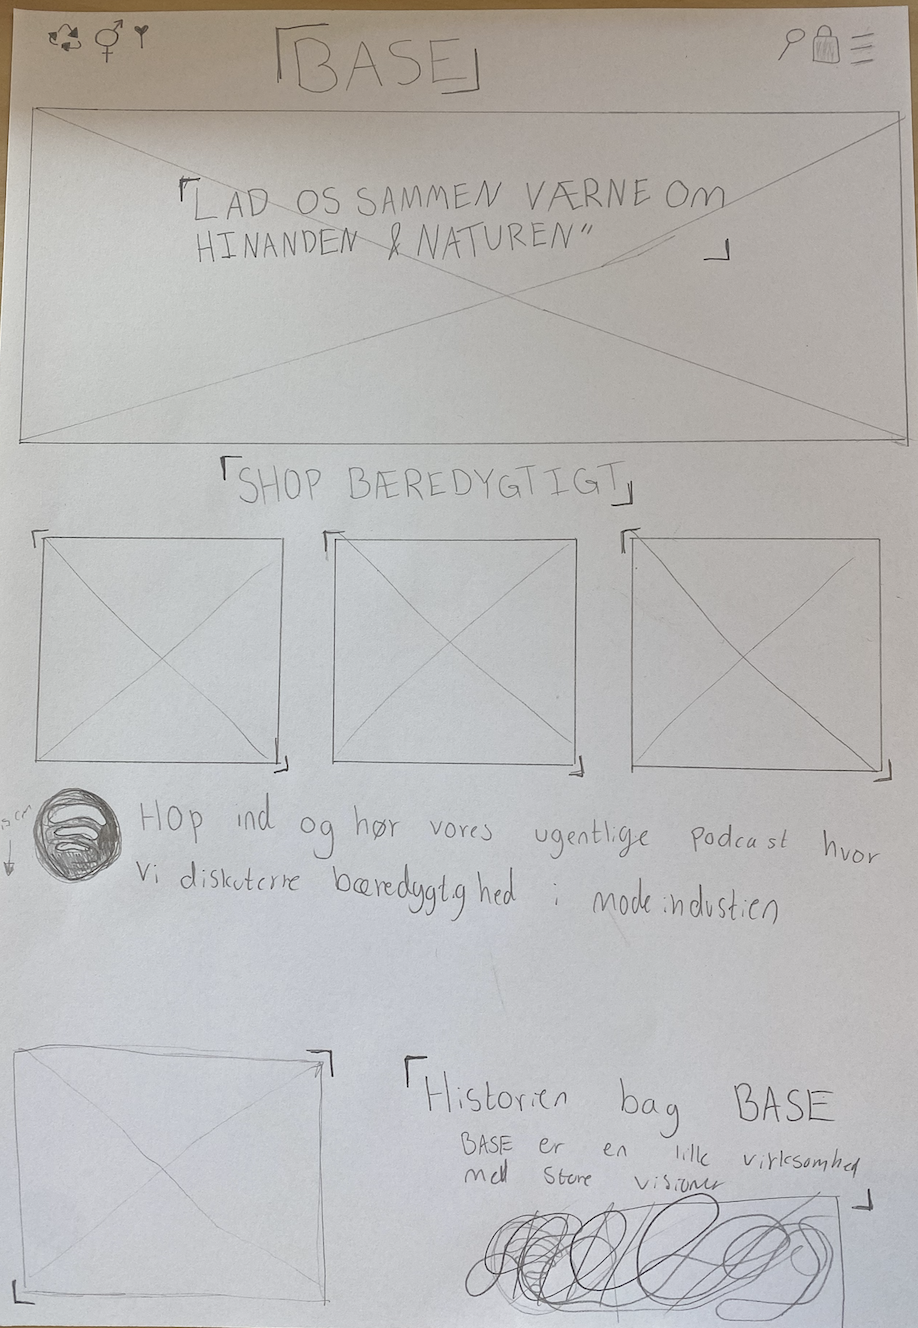 BASE
LAD OS SAMMEN VÆRNE Om
HINANDEN & NATUREN"
SHOP BÆREDYGTIGT
HOp ind og hør vores ugentlige podcast hvor
Vi diskuterre bæredygtighed i modeindustien
Historien bag BASE
BASE er en lille virksomhed
med store visioner